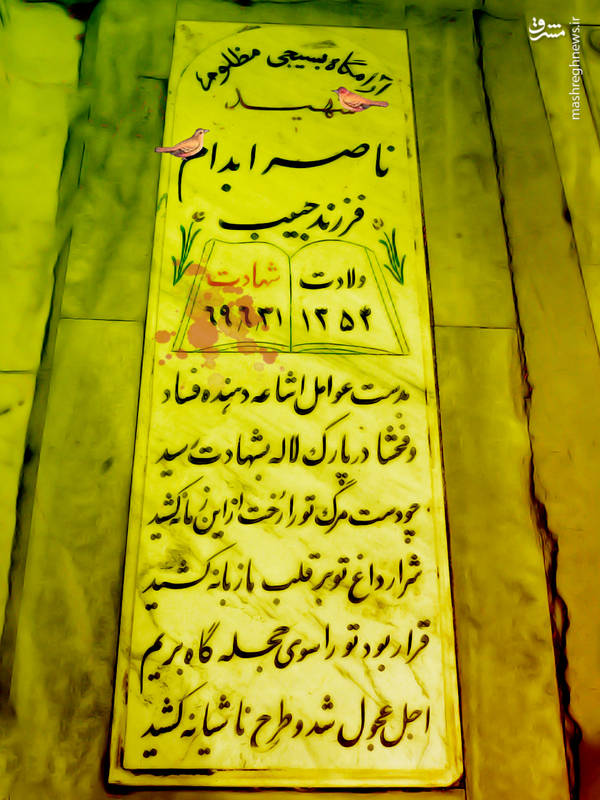 مشرق
mashreghnews.ir
آرامگاه بسیجی مظلوم
شهید
ناصر ابدام
فرزند حبیب
ولادت شهادت
۱۳۵۴ ۶۹/۶/۳۱
بدست عوامل اشاعه دهنده فساد
و فحشا در پارک لاله بشهادت رسید
چو دست مرگ تو را رخت از این زمانه کشید
شرار داغ تو بر قلب ما زبانه کشید
قرار بود تو را سوی حجله گاه بریم
اجل عجول شد و طرح ناشیانه کشید